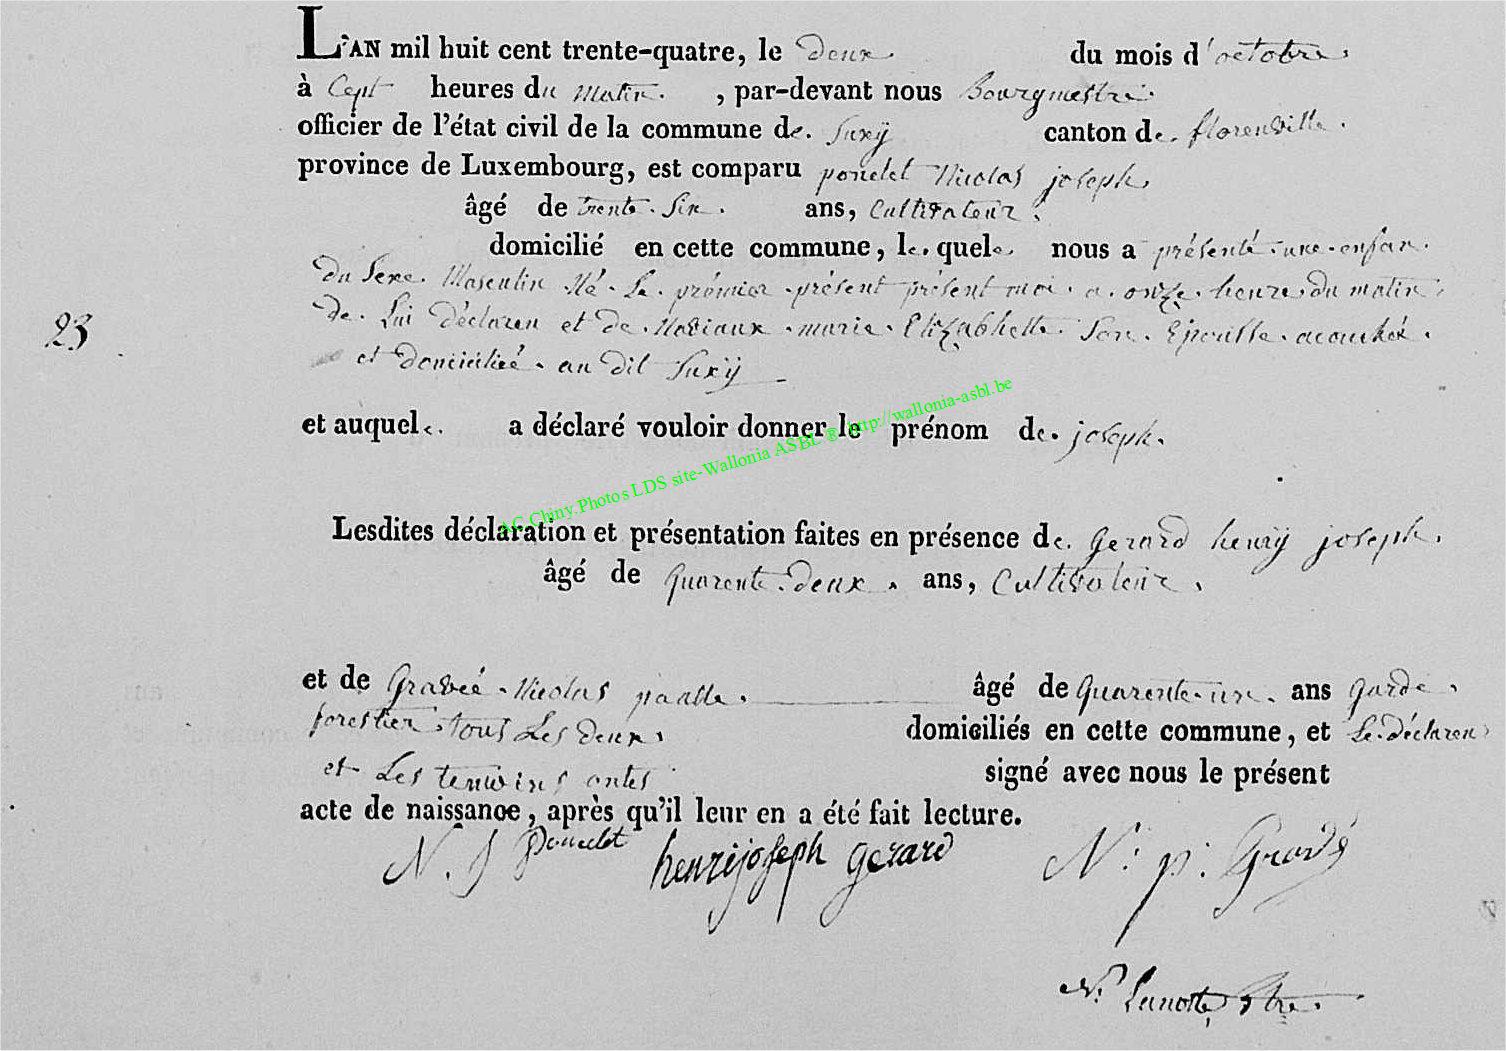 L'AN mil huit cent trente-quatre, le deux du mois d'octobre.
à Cept heures du matin. , par-devant nous Bourgmestre.
officier de l'état civil de la commune de. Suxÿ canton de. florenville.
province de Luxembourg, est comparu poncelet Nicolas joseph.
âgé de trente. Six. ans, Cultivateur.
domicilié en cette commune, le. quele nous a présenté. une. enfan.
du Sexe. Masculin. Né. Le. prémier. présent présent moi. a. onze. heure du matin.
23
de. Lui déclaren et de. marie. Elizabhette. Son. Epousse. acouchéé.
et domiciliéé. au dit Suxÿ
et auquele. a déclaré vouloir donner le prénom de. joseph.
AC Chiny.Photos LDS site-Wallonia ASBL ® http://wallonia-asbl.be
Lesdites déclaration et présentation faites en présence de. Gerard henrÿ joseph.
âgé de quarente. deux. ans, Cultivateur.
et de Gravéé. Nicolas âgé de quarente. un. ans garde.
forestier. tous Les deux. domiciliés en cette commune, et Le. déclaren
et Les temoins ontes signé avec nous le présent
acte de naissance, après qu'il leur en a été fait lecture.
N. J Poncelet henrijoseph gerard N. p. Gravé
N.